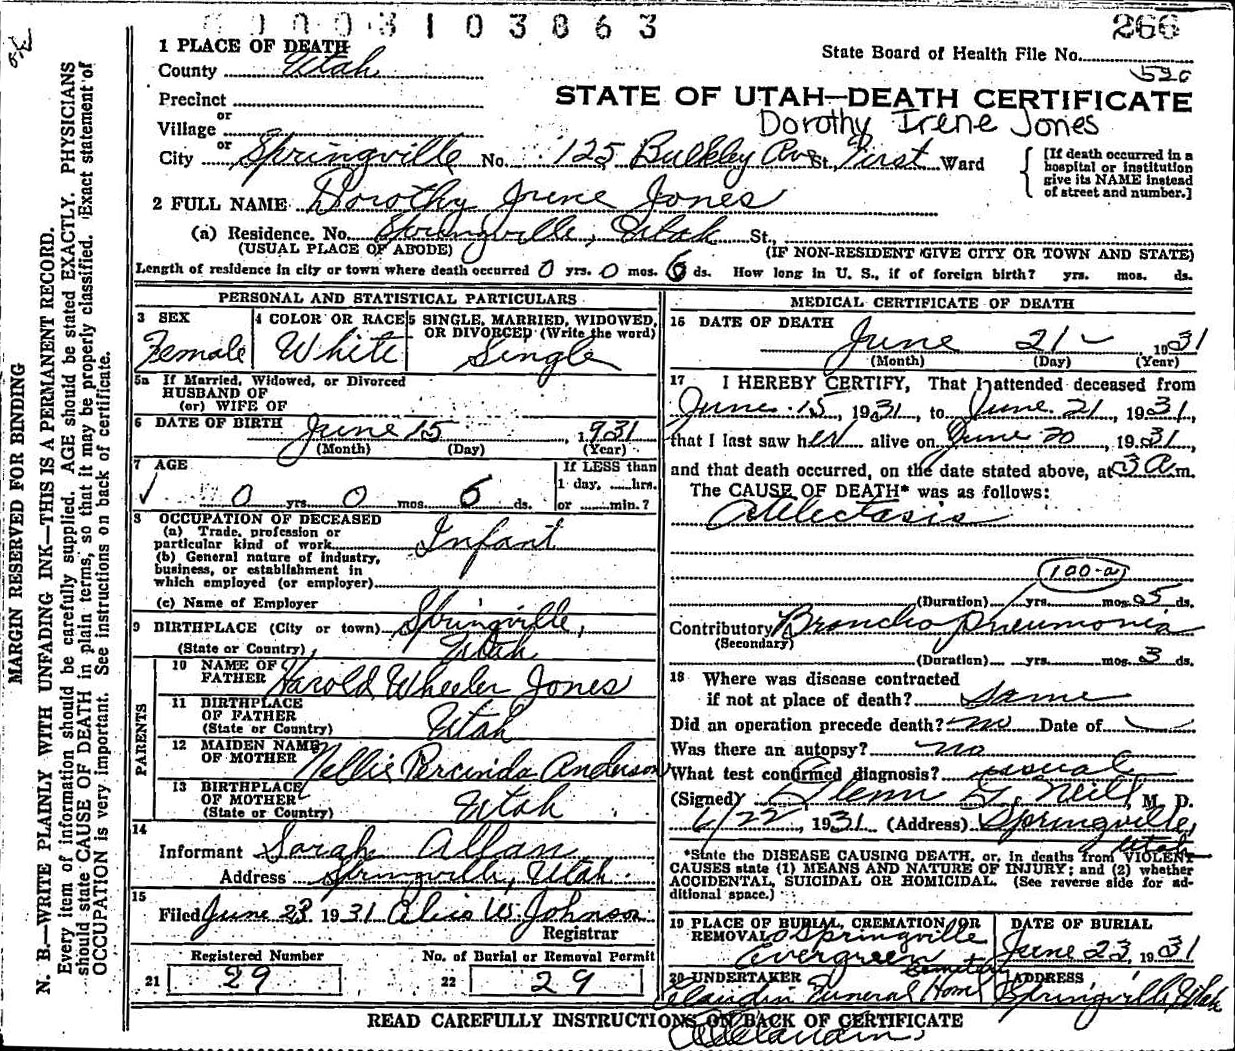 0003103863
266
1 PLACE OF DEATH
County Utah
State Board of Health File No.
520
Precinct
STATE OF UTAH—DEATH CERTIFICATE
or
Village
Dorothy Irene Jones
or
City Springville No. 125 Bulkley Ave St., First Ward
[If death occurred in a hospital or institution give its NAME instead of street and number.]
2 FULL NAME Dorothy Irene Jones
(a) Residence. No. Springville, Utah St.,
(USUAL PLACE OF ABODE) (IF NON-RESIDENT GIVE CITY OR TOWN AND STATE)
Length of residence in city or town where death occurred 0 yrs. 0 mos. 6 ds. How long in U. S., if of foreign birth? yrs. mos. ds.
PERSONAL AND STATISTICAL PARTICULARS
3 SEX
Female
4 COLOR OR RACE
White
5 SINGLE, MARRIED, WIDOWED, OR DIVORCED (Write the word)
Single
5a If Married, Widowed, or Divorced
HUSBAND OF
(or) WIFE OF
6 DATE OF BIRTH June 15, 1931
(Month) (Day) (Year)
7 AGE
0 yrs. 0 mos. 6 ds.
If LESS than
1 day, hrs.
or min.?
8 OCCUPATION OF DECEASED
(a) Trade, profession or
particular kind of work Infant
(b) General nature of industry,
business, or establishment in
which employed (or employer)
(c) Name of Employer
9 BIRTHPLACE (City or town) Springville,
(State or Country) Utah
PARENTS
10 NAME OF
FATHER Harold Wheeler Jones
11 BIRTHPLACE
OF FATHER
(State or Country) Utah
12 MAIDEN NAME
OF MOTHER Nellie Percinda Anderson
13 BIRTHPLACE
OF MOTHER
(State or Country) Utah
14
Informant Sarah Allan
Address Springville, Utah
15
Filed June 23 1931 Alice W. Johnson
Registrar
Registered Number
21 29
No. of Burial or Removal Permit
22 29
MEDICAL CERTIFICATE OF DEATH
16 DATE OF DEATH
June 21 1931
(Month) (Day) (Year)
17 I HEREBY CERTIFY, That I attended deceased from
June 15, 1931, to June 21, 1931,
that I last saw her alive on June 20, 1931,
and that death occurred, on the date stated above, at 3 a m.
The CAUSE OF DEATH* was as follows:
Atelectasis
100-a
(Duration) yrs. mos. 5 ds.
Contributory Broncho pneumonia
(Secondary)
(Duration) yrs. mos. 3 ds.
18 Where was disease contracted
if not at place of death? Same
Did an operation precede death? no Date of
Was there an autopsy? no
What test confirmed diagnosis? usual
(Signed) Glenn G. Neill, M. D.
6/22, 1931 (Address) Springville, Utah
*State the DISEASE CAUSING DEATH, or, in deaths from VIOLENT
CAUSES state (1) MEANS AND NATURE OF INJURY; and (2) whether
ACCIDENTAL, SUICIDAL OR HOMICIDAL. (See reverse side for additional space.)
19 PLACE OF BURIAL, CREMATION, OR
REMOVAL Springville
Evergreen Cemetery
DATE OF BURIAL
June 23, 1931
20 UNDERTAKER
Claudin Funeral Home
ADDRESS
Springville, Utah
READ CAREFULLY INSTRUCTIONS ON BACK OF CERTIFICATE
MARGIN RESERVED FOR BINDING
N. B.—WRITE PLAINLY WITH UNFADING INK—THIS IS A PERMANENT RECORD.
Every item of information should be carefully supplied. AGE should be stated EXACTLY. PHYSICIANS
should state CAUSE OF DEATH in plain terms, so that it may be properly classified. Exact statement of
OCCUPATION is very important. See instructions on back of certificate.